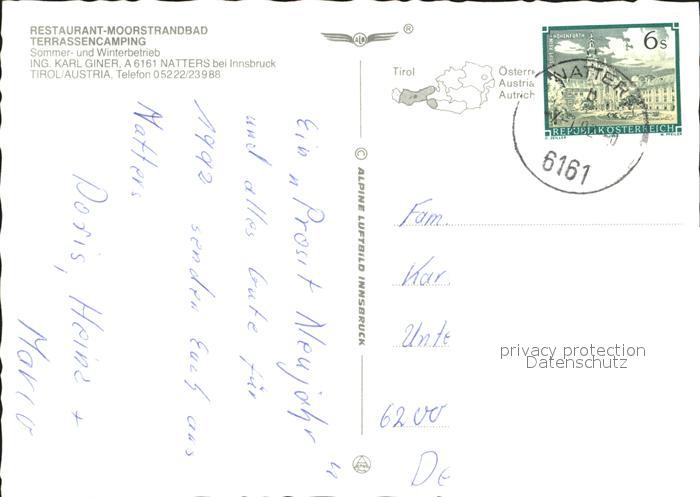 RESTAURANT-MOORSTRANDBAD
TERRASSENCAMPING
Sommer- und Winterbetrieb
ING. KARL GINER, A 6161 NATTERS bei Innsbruck
TIROL/AUSTRIA, Telefon 05222/23988
Ein "Prosit Neujahr"
und alles Gute für
1992 senden Euch aus
Natters
Doris, Heinz +
Mario
ALB
®
© ALPINE LUFTBILD INNSBRUCK
Tirol
Österre
Austria
Autrich
6s
REPUBLIK ÖSTERREICH
NATTERS
6161
Fam.
Kar.
Unte
6200
De
privacy protection
Datenschutz